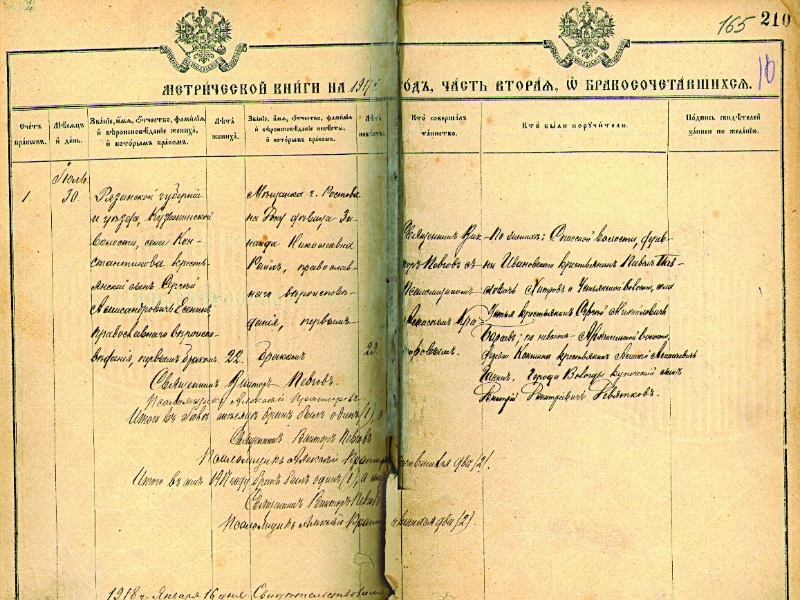 165 210
10
МЕТРИЧЕСКОЙ КНИГИ НА 1917 ГОДЪ, ЧАСТЬ ВТОРАЯ, Ѿ БРАКОСОЧЕТАВШИХСЯ.
Счетъ браковъ.
Мѣсяцъ и день.
Званіе, имя, отчество, фамилія и вѣроисповѣданіе жениха, и которымъ бракомъ.
Лѣта жениха.
Званіе, имя, отчество, фамилія и вѣроисповѣданіе невѣсты, и которымъ бракомъ.
Лѣта невѣсты.
Кто совершалъ таинство.
Кто были поручители.
Подпись свидѣтелей записи по желанію.
1.
Іюль
30.
Рязанской губерніи
и уѣзда, Кузьминской
волости, села Кон-
стантинова кресть-
янскій сынъ Сергѣй
Александровичъ Есенинъ
православнаго вѣроиспо-
вѣданія, первымъ бракомъ.
22.
Мѣщанка г. Ростова
на Дону дѣвица Зи-
наида Николаевна
Райхъ, православ-
наго вѣроисповѣ-
данія, первымъ
бракомъ
23.
Священникъ Вик-
торъ Пѣвговъ съ
псаломщикомъ
Алексѣемъ Кра-
тировымъ.
По женихѣ: Спасской волости, дерев-
ни Ивановской крестьянинъ Павелъ
Хитровъ и Устьянской волости, села
Устья крестьянинъ Сергѣй Михайловичъ
Бараевъ; по невѣстѣ: Архангельской волости,
деревни Коншино крестьянинъ Алексѣй Алексѣевичъ
Ганинъ. города Вологды купеческій сынъ
Дмитрій Дмитріевичъ Девятковъ.
Священникъ Викторъ Пѣвговъ.
Псаломщикъ Алексѣй Кратировъ
Итого въ Іюлѣ мѣсяцѣ бракъ былъ одинъ (1) а
Священникъ Викторъ Пѣвговъ
Псаломщикъ Алексѣй Кратировъ
два (2).
Итого въ семъ 1917 году бракъ былъ одинъ (1), а
Священникъ Викторъ Пѣвговъ
Псаломщикъ Алексѣй Кратировъ
два (2).
1918 г. Января 16 дня Свидѣтельствовалъ